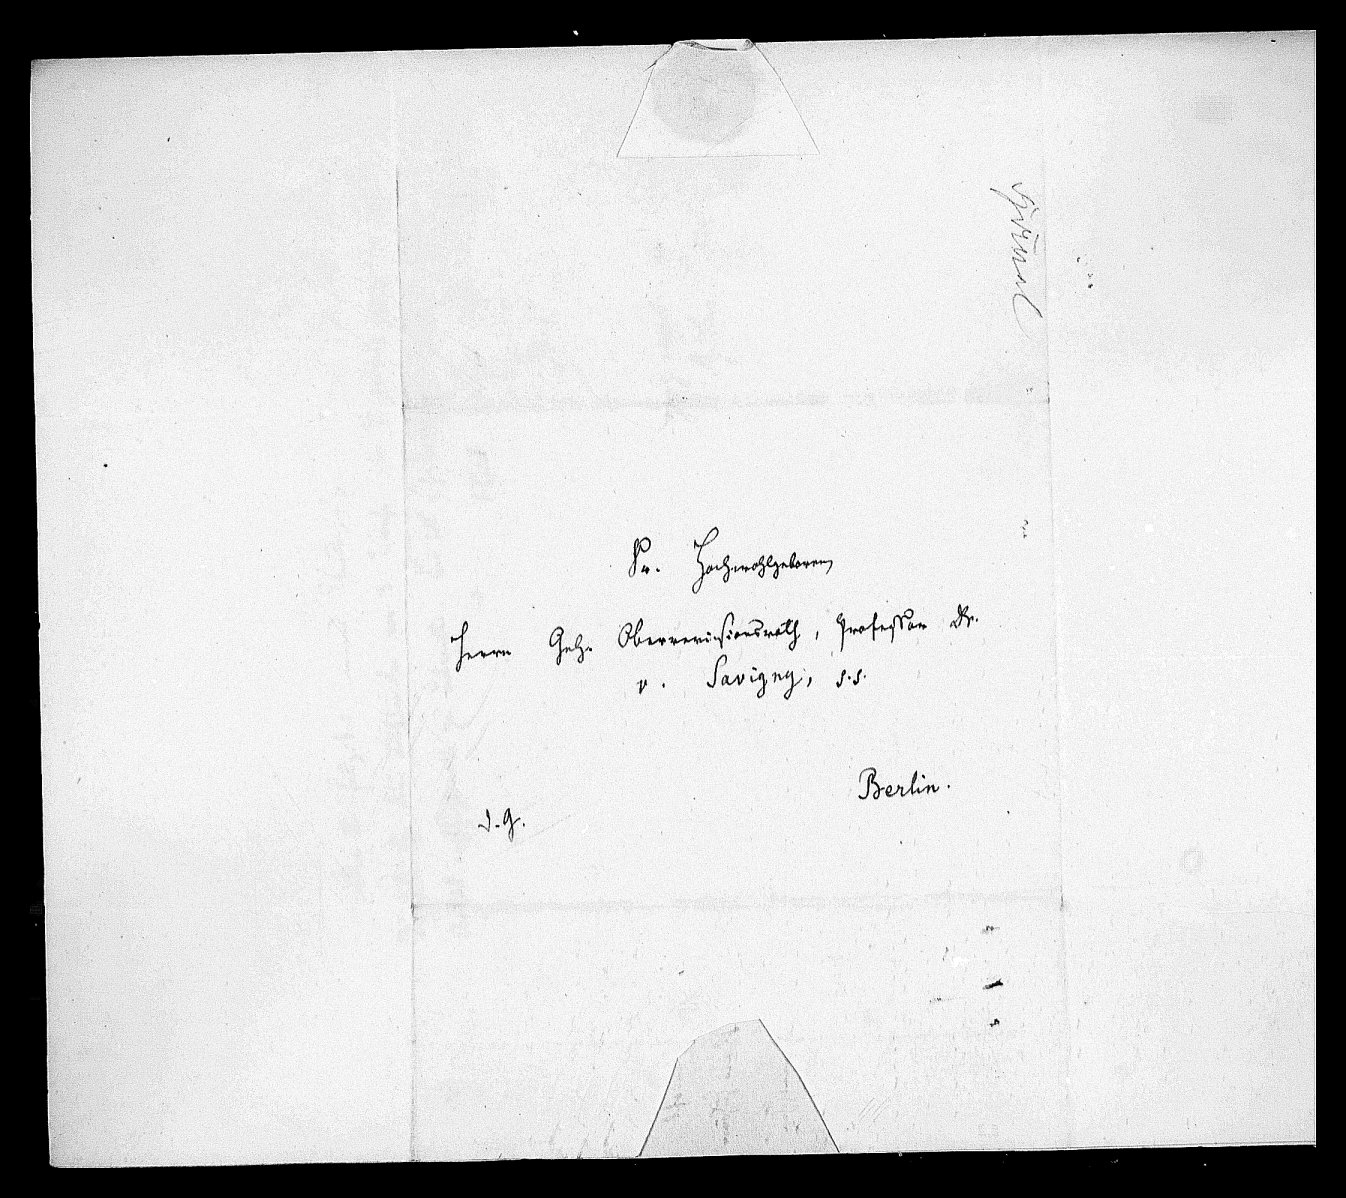 Sr. Hochwohlgeboren
Herrn Geh. Oberrevisionsrath, Professor Dr.
v. Savigny, s.s.
Berlin.
d. G.